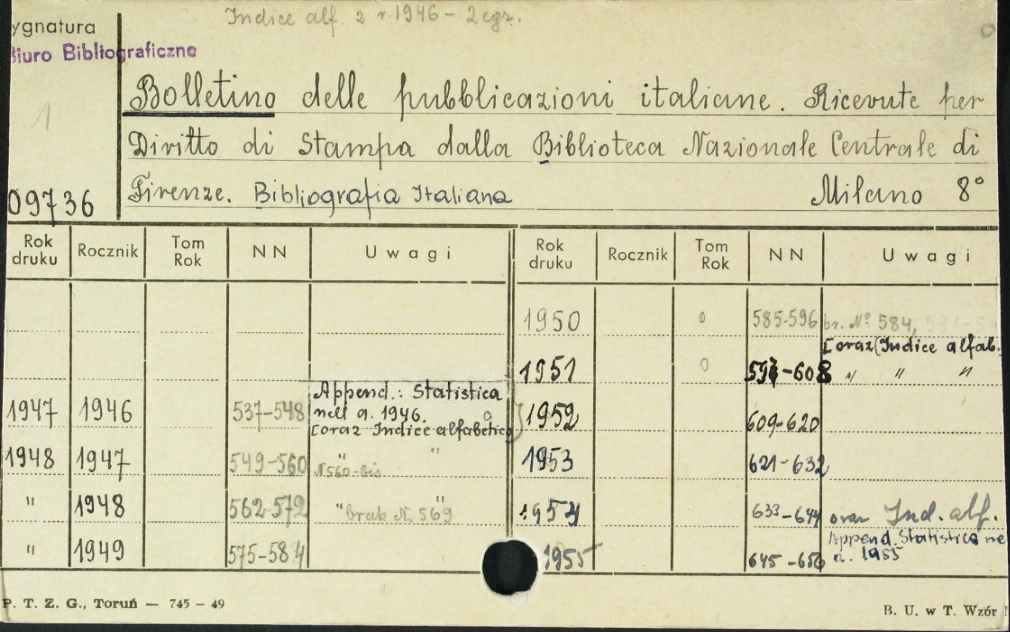 Indice alf. z r 1946 - 2 egz.
ygnatura
Biuro Bibliograficzne
1
Bolletino delle pubblicazioni italiane. Ricevute per
Diritto di Stampa dalla Biblioteca Nazionale Centrale di
Firenze. Bibliografia Italiana Milano 8°
09736
Rok druku Rocznik Tom Rok NN Uwagi Rok druku Rocznik Tom Rok NN Uwagi
1950 0 585-596 br. № 584,
[oraz (Indice alfab.
1951 0 597-608 " " "
Append.: Statistica
nell a. 1946.
1947 1946 537-548 [oraz Indice alfabetico 1952 609-620
1948 1947 549-560 " " N 560-bis 1953 621-632
" 1948 562-572 " " brak N. 569 1954 633-644 oraz Ind. alf.
" 1949 575-584 1955 645-656 Append. Statistica ne
a. 1955
P. T. Z. G., Toruń — 745 - 49
B. U. w T. Wzór